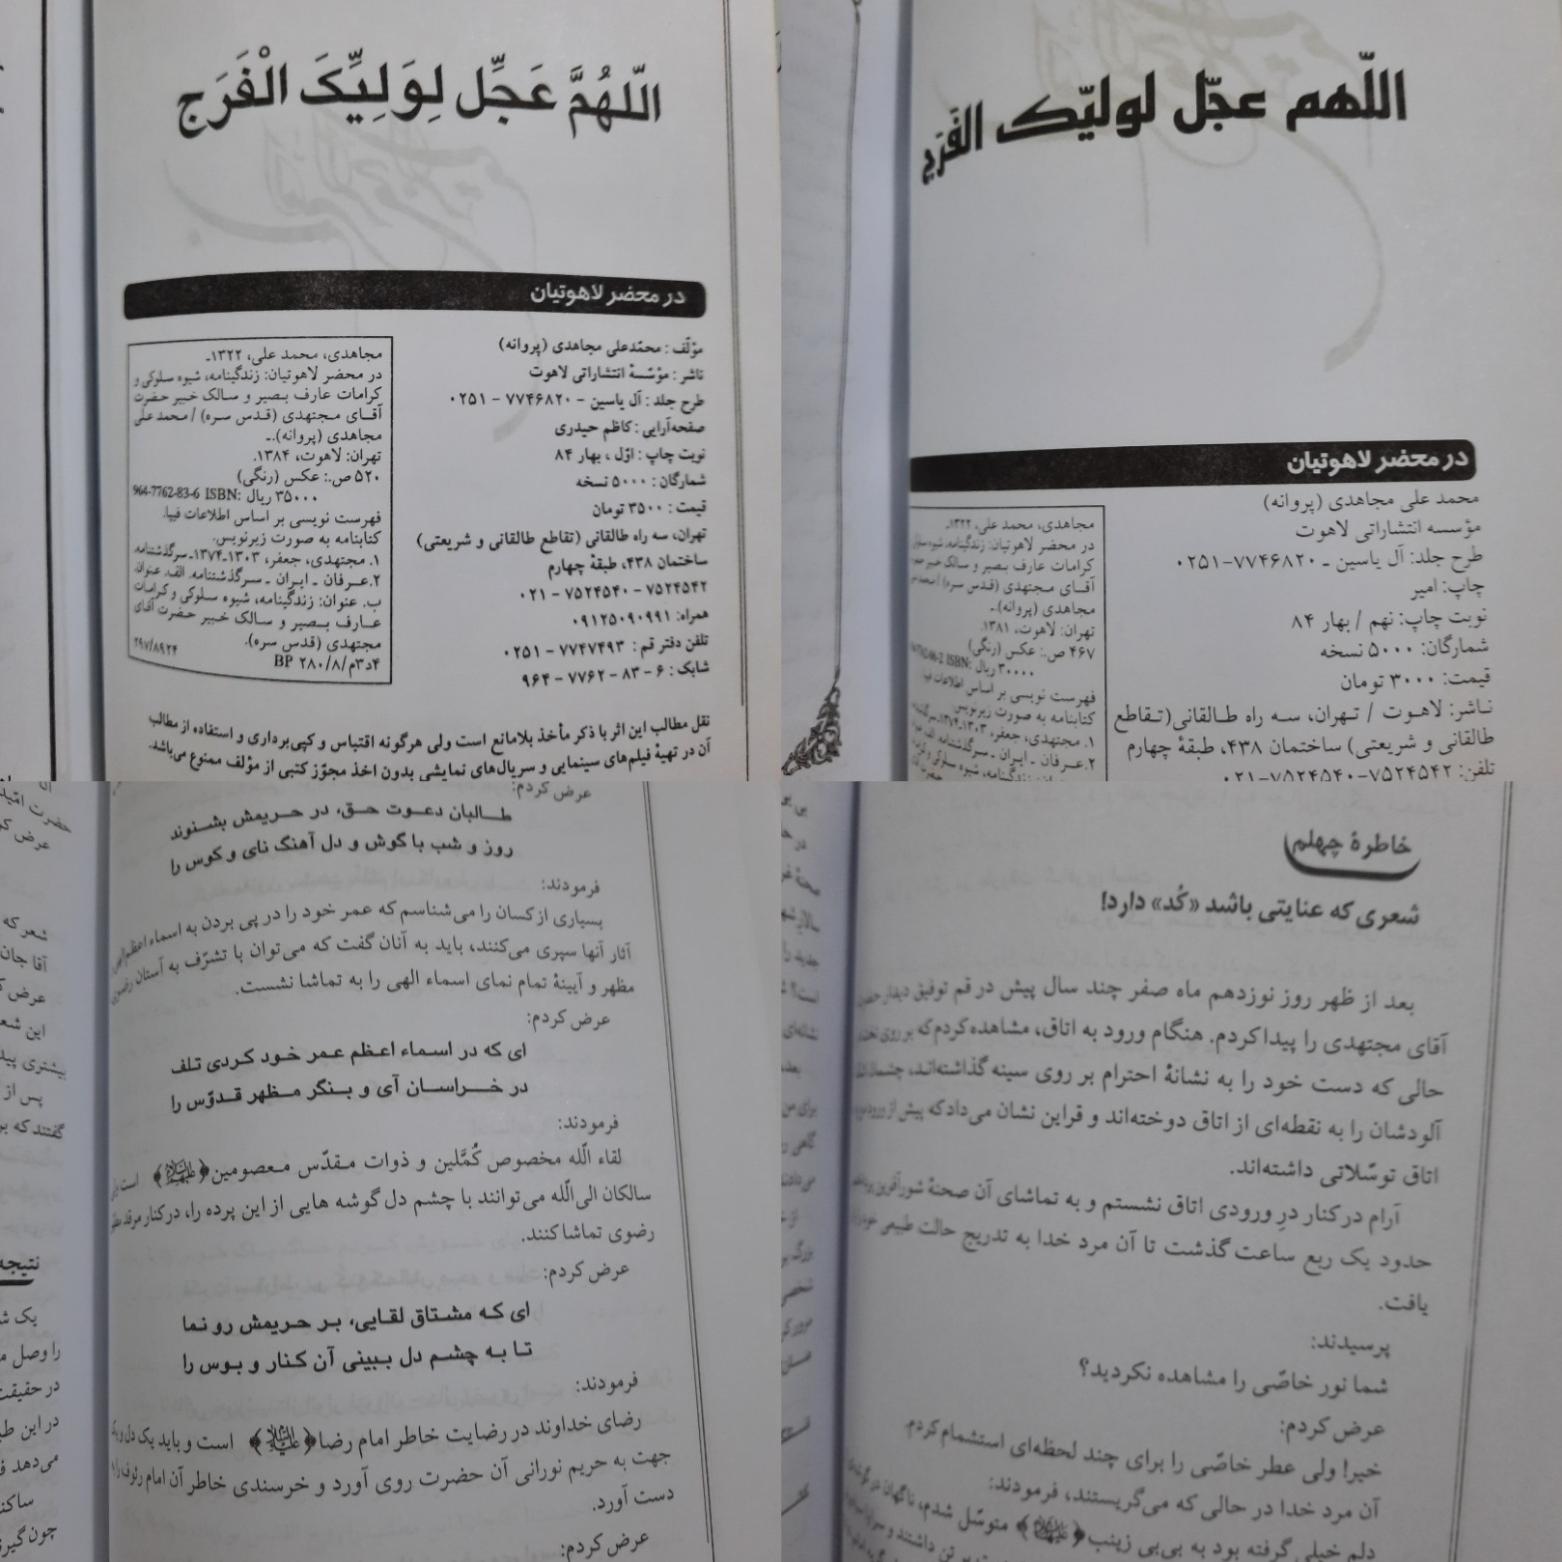 اللّهُمَّ عَجِّل لِوَلِیِّکَ الْفَرَج
در محضر لاهوتیان
مؤلّف : محمّدعلی مجاهدی (پروانه)
ناشر : مؤسّسهٔ انتشاراتی لاهوت
طرح جلد : آل یاسین - ۷۷۴۶۸۲۰ - ۰۲۵۱
صفحه‌آرایی : کاظم حیدری
نوبت چاپ : اوّل ، بهار ۸۴
شمارگان : ۵۰۰۰ نسخه
قیمت : ۳۵۰۰ تومان
تهران، سه راه طالقانی (تقاطع طالقانی و شریعتی)
ساختمان ۴۳۸، طبقهٔ چهارم
۷۵۲۴۵۴۲ - ۷۵۲۴۵۴۰ - ۰۲۱
همراه: ۰۹۱۲۵۰۹۰۹۹۱
تلفن دفتر قم : ۷۷۴۷۴۹۳ - ۰۲۵۱
شابک : ۶ - ۸۳ - ۷۷۶۲ - ۹۶۴
مجاهدی، محمد علی، ۱۳۲۲ـ
در محضر لاهوتیان: زندگینامه، شیوه سلوکی و
کرامات عارف بصیر و سالک خبیر حضرت
آقـای مـجتهدی (قـدس سـره) / محمد علی
مجاهدی (پروانه).ـ
تهران: لاهوت، ۱۳۸۴.
۵۲۰ ص.: عکس (رنگی)
۳۵۰۰۰ ریال ISBN: 964-7762-83-6
فهرست نویسی بر اساس اطلاعات فیپا.
کتابنامه به صورت زیرنویس.
۱. مجتهدی، جعفر، ۱۳۰۳-۱۳۷۴ـ سرگذشتنامه.
۲.عـرفان ـ ایـران ـ سـرگذشتنامه. الف. عنوان.
ب. عنوان: زندگینامه، شیوه سلوکی و کرامات
عـارف بـصیر و سالک خـبیر حضرت آقای
مجتهدی (قدس سره).
۲۹۷/۸۹۲۴
BP ۲۸۰/۸/م۳د۴
نقل مطالب این اثر با ذکر مأخذ بلامانع است ولی هرگونه اقتباس و کپی‌برداری و استفاده از مطالب
آن در تهیهٔ فیلم‌های سینمایی و سریال‌های نمایشی بدون اخذ مجوّز کتبی از مؤلف ممنوع می‌باشد.
اللّهم عجّل لولیّک الفَرَج
در محضر لاهوتیان
محمد علی مجاهدی (پروانه)
مؤسسه انتشاراتی لاهوت
طرح جلد: آل یاسین ـ ۷۷۴۶۸۲۰-۰۲۵۱
چاپ: امیر
نوبت چاپ: نهم / بهار ۸۴
شمارگان: ۵۰۰۰ نسخه
قیمت: ۳۰۰۰ تومان
نـاشر: لاهـوت / تـهران، سـه راه طـالقانی(تـقاطع
طالقانی و شریعتی) ساختمان ۴۳۸، طبقهٔ چهارم
تلفن: ۷۵۲۴۵۴۲-۷۵۲۴۵۴۰-۰۲۱
مجاهدی، محمد علی، ۱۳۲۲ـ
در محضر لاهوتیان: زندگینامه، شیوه
کرامات عارف بصیر و سالک خبیر
آقـای مـجتهدی (قـدس سـره)
مجاهدی (پروانه).ـ
تهران: لاهوت، ۱۳۸۱.
۴۶۷ ص.: عکس (رنگی)
۳۰۰۰۰ ریال ISBN:
فهرست نویسی بر اساس اطلاعات
کتابنامه به صورت زیرنویس.
۱. مجتهدی، جعفر، ۱۳۰۳-۱۳۷۴ـ
۲.عـرفان ـ ایـران ـ سـرگذشتنامه.
عرض کردم:
طـالبان دعـوت حـق، در حـریمش بشـنوند
روز و شب با گوش و دل آهنگ نای و کوس را
فرمودند:
بسیاری از کسان را می‌شناسم که عمر خود را در پی بردن به اسماء اعظم
آثار آنها سپری می‌کنند، باید به آنان گفت که می‌توان با تشرّف به آستان رضوی
مظهر و آیینهٔ تمام نمای اسماء الهی را به تماشا نشست.
عرض کردم:
ای که در اسـماء اعـظم عمر خـود کـردی تـلف
در خـراسـان آی و بـنگر مـظهر قـدوّس را
فرمودند:
لقاء اللّه مخصوص کُمَّلین و ذوات مـقدّس مـعصومین﴿علیهم السلام﴾ است
سالکان الی اللّه می‌توانند با چشم دل گوشه هایی از این پرده را، در کنار مرقد
رضوی تماشا کنند.
عرض کردم:
ای کـه مشـتاق لقـایی، بـر حـریمش رو نما
تـا بـه چشـم دل بـبینی آن کـنار و بـوس را
فرمودند:
رضای خداوند در رضایت خاطر امام رضا﴿علیه السلام﴾ است و باید یک دل و یک
جهت به حریم نورانی آن حضرت روی آورد و خرسندی خاطر آن امام رئوف را
دست آورد.
عرض کردم:
خاطرهٔ چهلم
شعری که عنایتی باشد «کُد» دارد!
بعد از ظهر روز نوزدهم ماه صفر چند سال پیش در قم توفیق دیدار
آقای مجتهدی را پیدا کردم. هنگام ورود به اتاق، مشاهده کردم که بر روی
حالی که دست خود را به نشانهٔ احترام بر روی سینه گذاشته‌اند، چشمان
آلودشان را به نقطه‌ای از اتاق دوخته‌اند و قراین نشان می‌داد که پیش از ورود
اتاق توسّلاتی داشته‌اند.
آرام در کنار درِ ورودی اتاق نشستم و به تماشای آن صحنهٔ شورآفرین
حدود یک ربع ساعت گذشت تا آن مرد خدا به تدریج حالت طبیعی
یافت.
پرسیدند:
شما نور خاصّی را مشاهده نکردید؟
عرض کردم:
خیر! ولی عطر خاصّی را برای چند لحظه‌ای استشمام کردم.
آن مرد خدا در حالی که می‌گریستند، فرمودند:
دلم خیلی گرفته بود به بی‌بی زینب﴿علیها السلام﴾ متوسّل شدم، ناگهان در